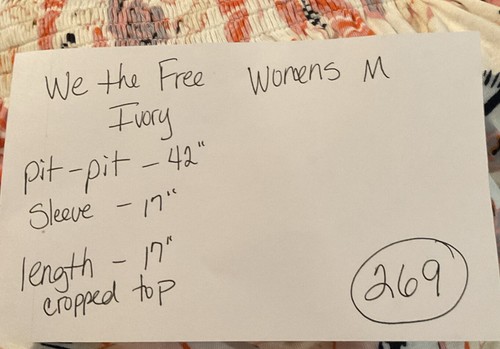 We the Free Womens M
Ivory
pit-pit - 42"
Sleeve - 17"
length - 17"
cropped top
269